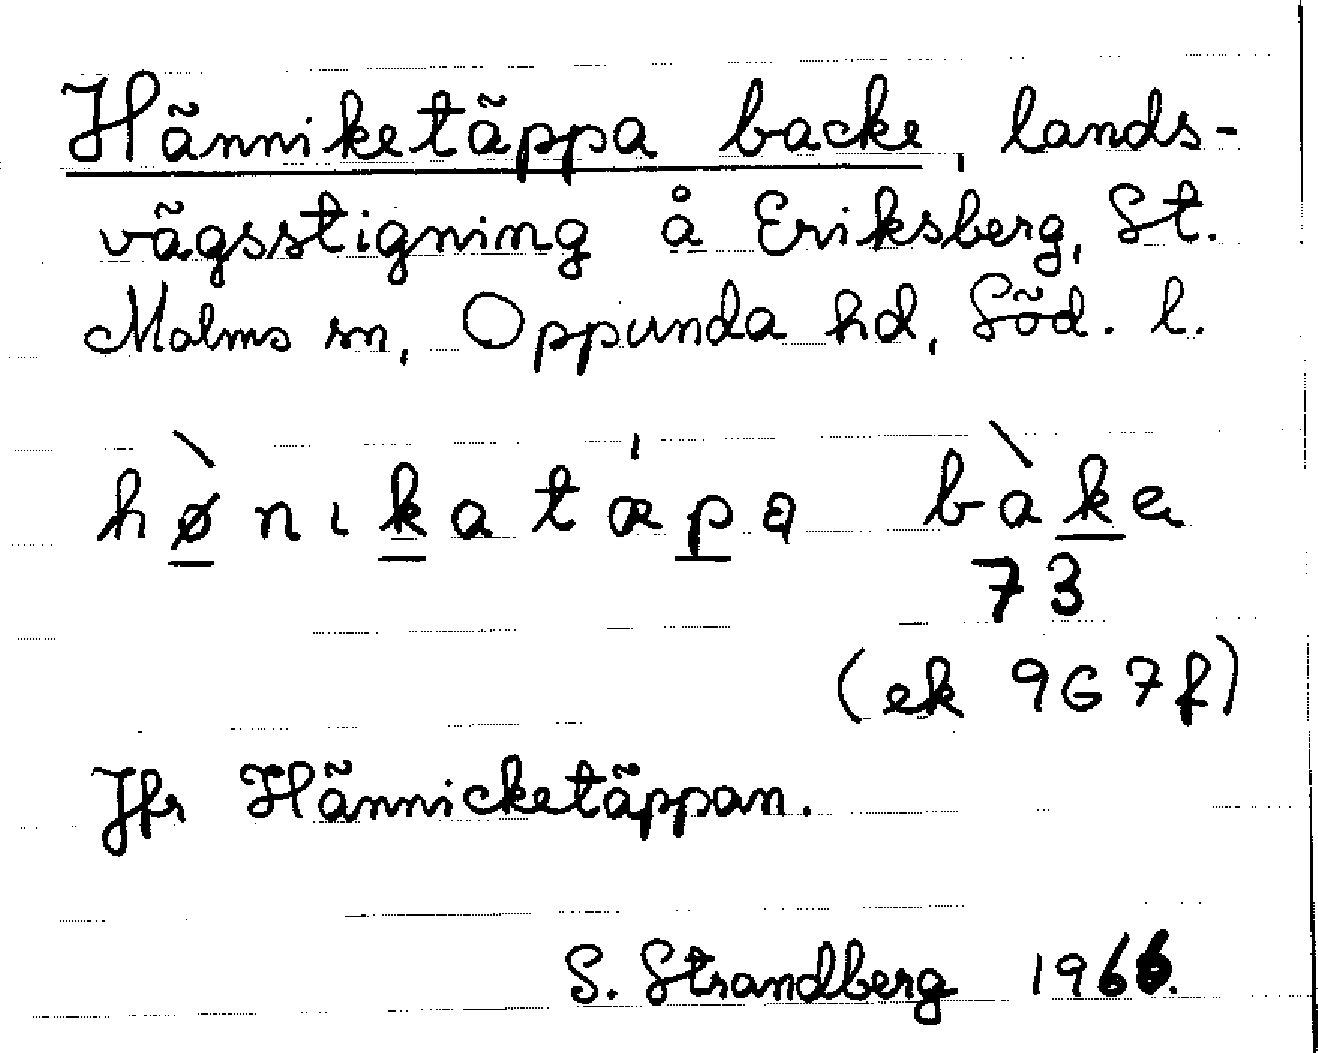 Hänniketäppa backe, lands-
vägsstigning å Eriksberg, St.
Malms sn, Oppunda hd, Söd. l.
hø̀nıkatǽpa bàkɐ
73
(ek 967f)
Jfr Hännicketäppan.
S. Strandberg 1966.